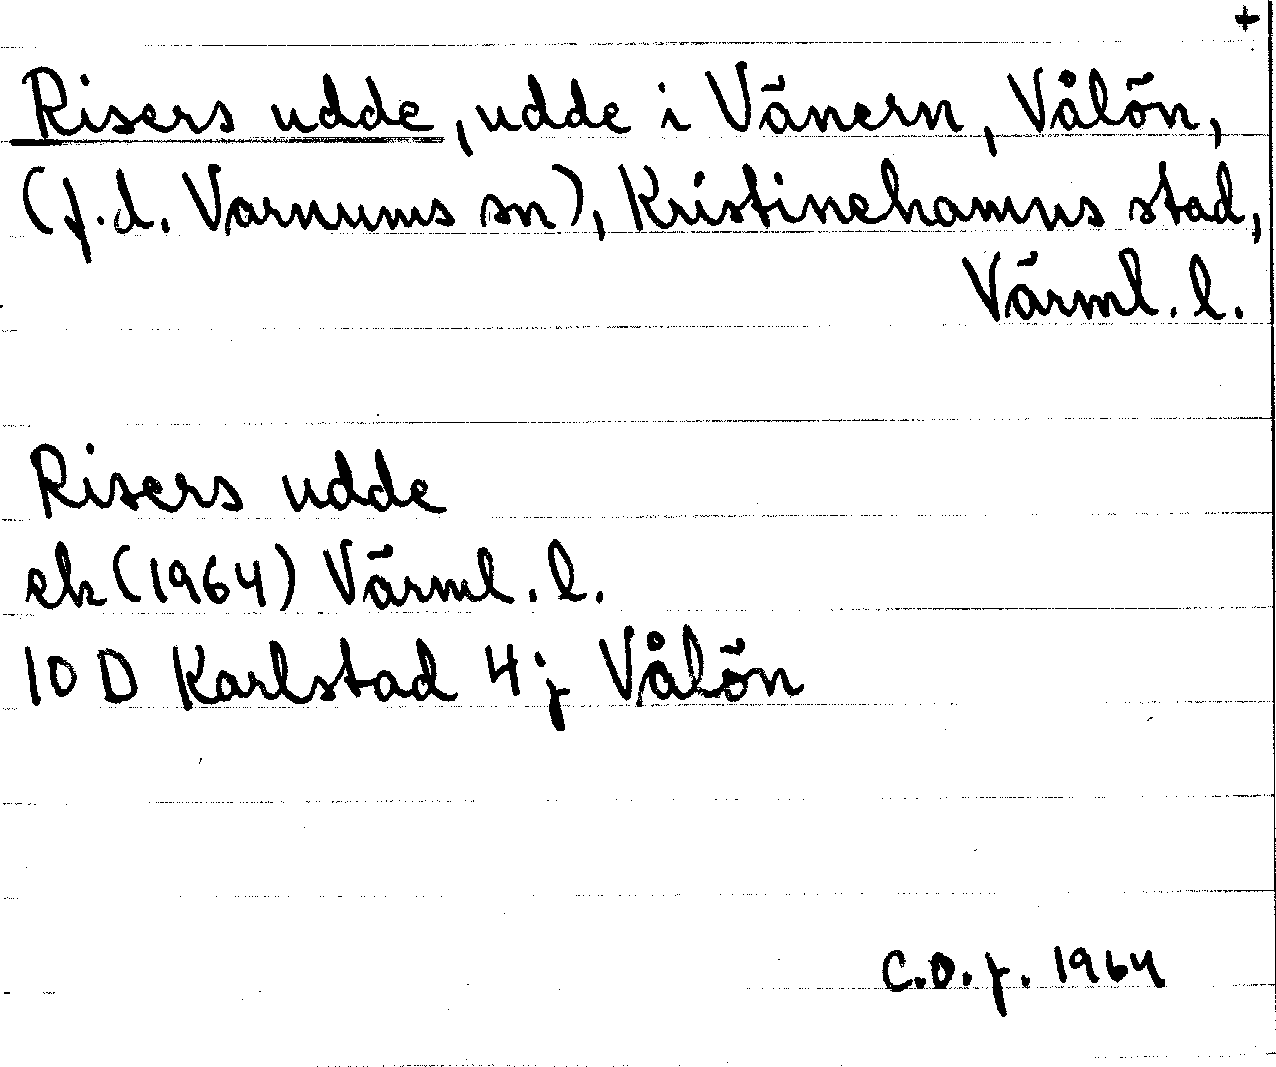 +
Risers udde, udde i Vänern, Vålön,
(f.d. Varnums sn), Kristinehamns stad,
Värml. l.
Risers udde
ek (1964) Värml. l.
10 D Karlstad 4 j Vålön
C.O.f. 1964